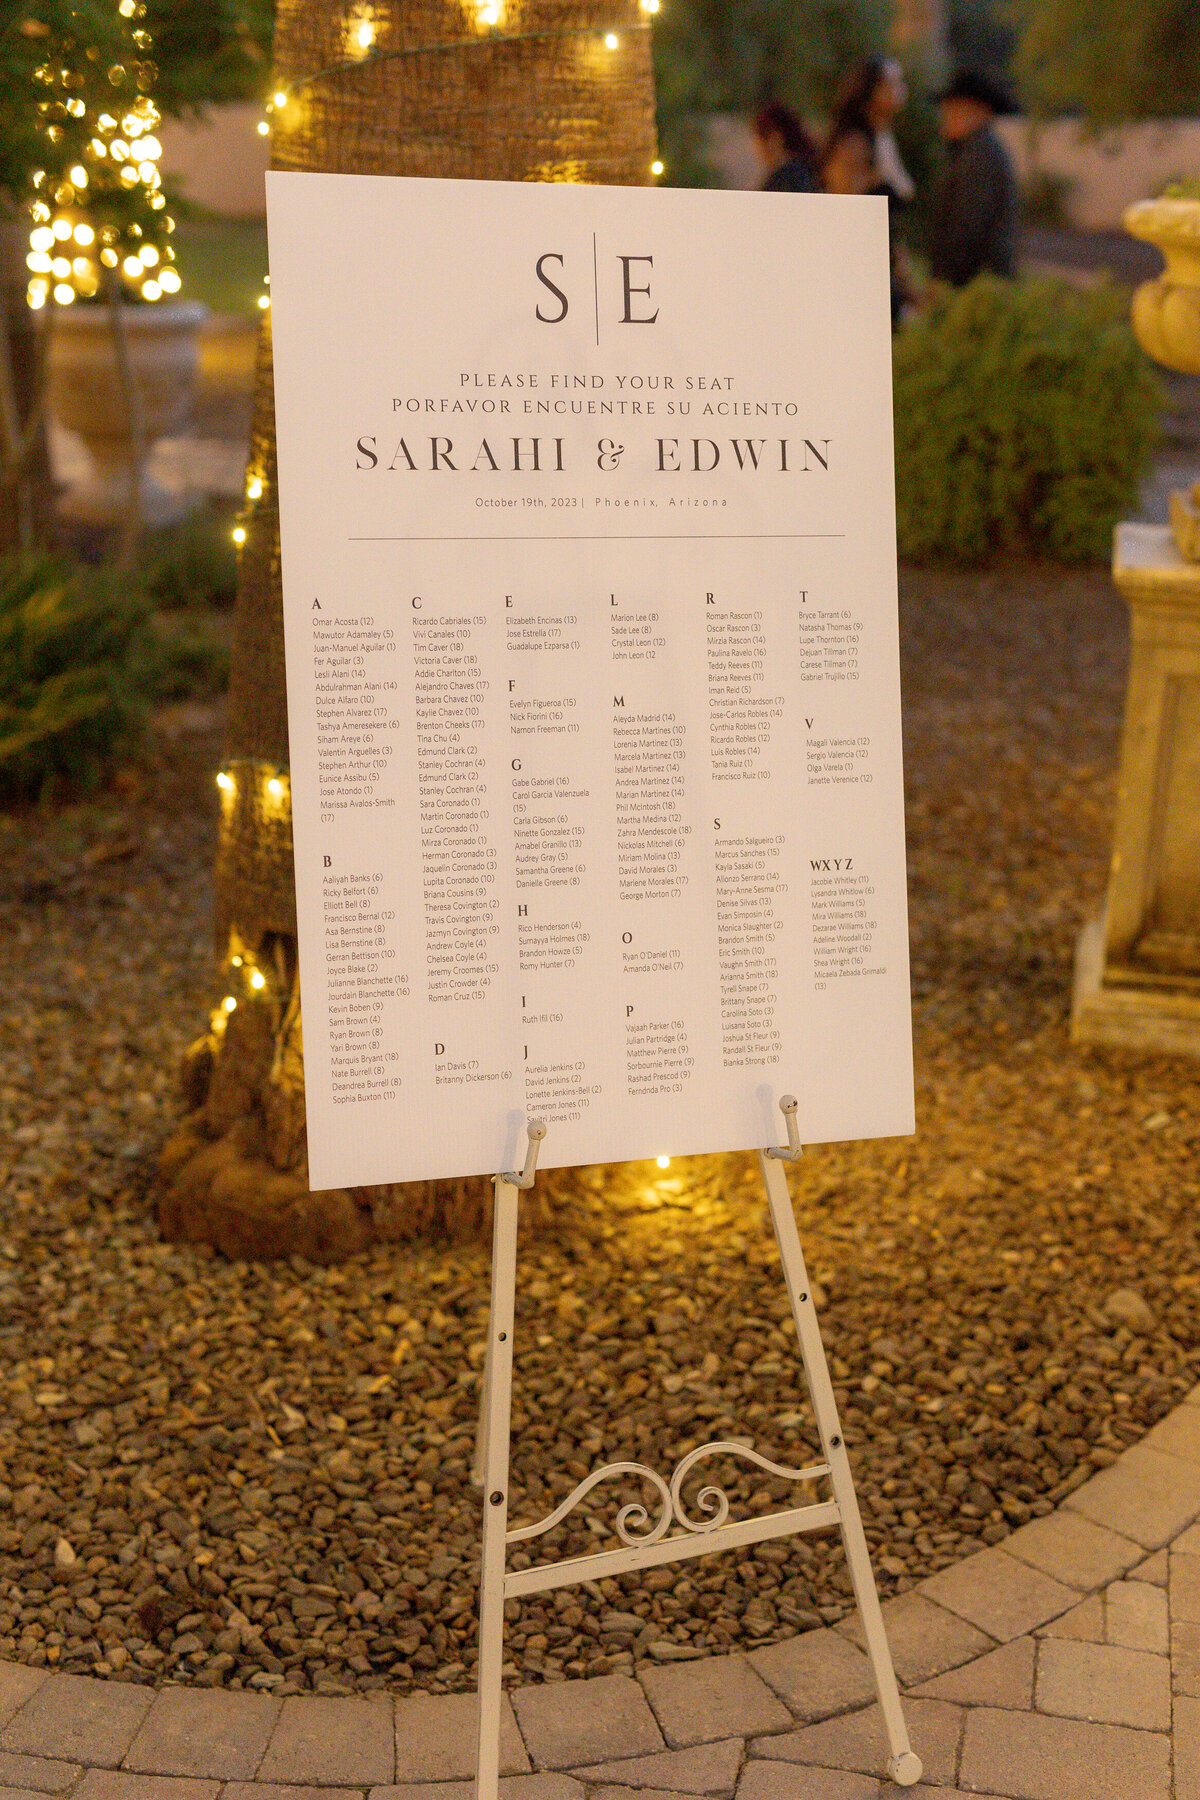 S | E
PLEASE FIND YOUR SEAT
PORFAVOR ENCUENTRE SU ACIENTO
SARAHI & EDWIN
October 19th, 2023 | Phoenix, Arizona
A
Omar Acosta (12)
Mawutor Adamaley (5)
Juan-Manuel Aguilar (1)
Fer Aguilar (3)
Lesli Alani (14)
Abdulrahman Alani (14)
Dulce Alfaro (10)
Stephen Alvarez (17)
Tashya Ameresekere (6)
Siham Areye (6)
Valentin Arguelles (3)
Stephen Arthur (10)
Eunice Assibu (5)
Jose Atondo (1)
Marissa Avalos-Smith
(17)
B
Aaliyah Banks (6)
Ricky Belfort (6)
Elliott Bell (8)
Francisco Bernal (12)
Asa Bernstine (8)
Lisa Bernstine (8)
Gerran Bettison (10)
Joyce Blake (2)
Julianne Blanchette (16)
Jourdain Blanchette (16)
Kevin Boben (9)
Sam Brown (4)
Ryan Brown (8)
Yari Brown (8)
Marquis Bryant (18)
Nate Burrell (8)
Deandrea Burrell (8)
Sophia Buxton (11)
C
Ricardo Cabriales (15)
Vivi Canales (10)
Tim Caver (18)
Victoria Caver (18)
Addie Charlton (15)
Alejandro Chaves (17)
Barbara Chavez (10)
Kaylie Chavez (10)
Brenton Cheeks (17)
Tina Chu (4)
Edmund Clark (2)
Stanley Cochran (4)
Edmund Clark (2)
Stanley Cochran (4)
Sara Coronado (1)
Martin Coronado (1)
Luz Coronado (1)
Mirza Coronado (1)
Herman Coronado (3)
Jaquelin Coronado (3)
Lupita Coronado (10)
Briana Cousins (9)
Theresa Covington (2)
Travis Covington (9)
Jazmyn Covington (9)
Andrew Coyle (4)
Chelsea Coyle (4)
Jeremy Croomes (15)
Justin Crowder (4)
Roman Cruz (15)
D
Ian Davis (7)
Britanny Dickerson (6)
E
Elizabeth Encinas (13)
Jose Estrella (17)
Guadalupe Ezparsa (1)
F
Evelyn Figueroa (15)
Nick Fiorini (16)
Namon Freeman (11)
G
Gabe Gabriel (16)
Carol Garcia Valenzuela
(15)
Carla Gibson (6)
Ninette Gonzalez (15)
Amabel Granillo (13)
Audrey Gray (5)
Samantha Greene (6)
Danielle Greene (8)
H
Rico Henderson (4)
Sumayya Holmes (18)
Brandon Howze (5)
Romy Hunter (7)
I
Ruth Ifil (16)
J
Aurelia Jenkins (2)
David Jenkins (2)
Lonette Jenkins-Bell (2)
Cameron Jones (11)
Savitri Jones (11)
L
Marion Lee (8)
Sade Lee (8)
Crystal Leon (12)
John Leon (12
M
Aleyda Madrid (14)
Rebecca Martines (10)
Lorenia Martinez (13)
Marcela Martinez (13)
Isabel Martinez (14)
Andrea Martinez (14)
Marian Martinez (14)
Phil McIntosh (18)
Martha Medina (12)
Zahra Mendescole (18)
Nickolas Mitchell (6)
Miriam Molina (13)
David Morales (3)
Marlene Morales (17)
George Morton (7)
O
Ryan O'Daniel (11)
Amanda O'Neil (7)
P
Vajaah Parker (16)
Julian Partridge (4)
Matthew Pierre (9)
Sorbournie Pierre (9)
Rashad Prescod (9)
Ferndnda Pro (3)
R
Roman Rascon (1)
Oscar Rascon (3)
Mirzia Rascon (14)
Paulina Ravelo (16)
Teddy Reeves (11)
Briana Reeves (11)
Iman Reid (5)
Christian Richardson (7)
Jose-Carlos Robles (14)
Cynthia Robles (12)
Ricardo Robles (12)
Luis Robles (14)
Tania Ruiz (1)
Francisco Ruiz (10)
S
Armando Salgueiro (3)
Marcus Sanches (15)
Kayla Sasaki (5)
Alionzo Serrano (14)
Mary-Anne Sesma (17)
Denise Silvas (13)
Evan Simposin (4)
Monica Slaughter (2)
Brandon Smith (5)
Eric Smith (10)
Vaughn Smith (17)
Arianna Smith (18)
Tyrell Snape (7)
Brittany Snape (7)
Carolina Soto (3)
Luisana Soto (3)
Joshua St Fleur (9)
Randall St Fleur (9)
Bianka Strong (18)
T
Bryce Tarrant (6)
Natasha Thomas (9)
Lupe Thornton (16)
Dejuan Tillman (7)
Carese Tillman (7)
Gabriel Trujillo (15)
V
Magali Valencia (12)
Sergio Valencia (12)
Olga Varela (1)
Janette Verenice (12)
WXYZ
Jacobie Whitley (11)
Lysandra Whitlow (6)
Mark Williams (5)
Mira Williams (18)
Dezarae Williams (18)
Adeline Woodall (2)
William Wright (16)
Shea Wright (16)
Micaela Zebada Grimaldi
(13)